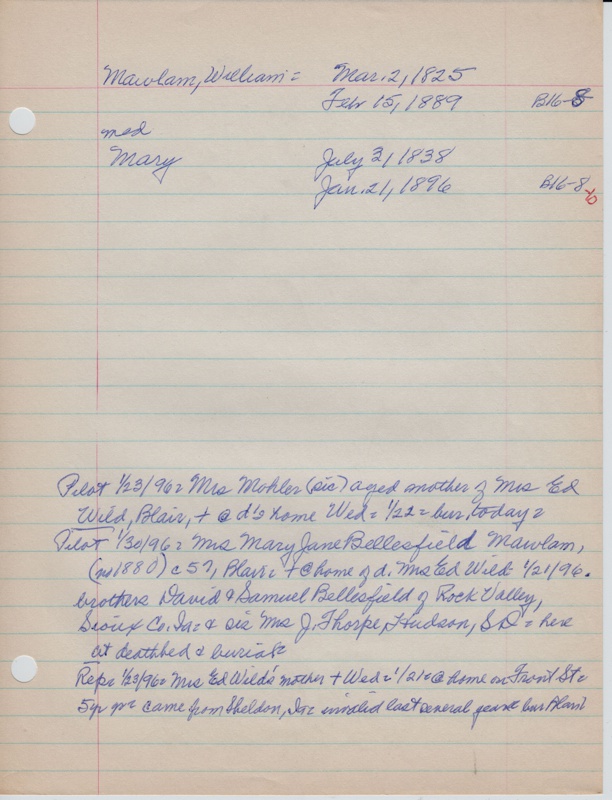 Mawlam, William = Mar. 2, 1825
Feb 15, 1889 B16-8
med
Mary July 3, 1838
Jan. 21, 1896 B16-8
Pilot 1/23/96 = Mrs Mohler (sic) aged mother of Mrs Ed
Wild, Blair, + @ d's home Wed = 1/22 = bur. today =
Pilot 1/30/96 = Mrs Mary Jane Bellesfield Mawlam,
(no 1880) c 57, Blair = + @ home of d. Mrs Ed Wild 1/21/96.
brothers David & Samuel Bellesfield of Rock Valley,
Sioux Co. Ia = & sis Mrs J. Thorpe, Hudson, S.D. = here
at deathbed & burial =
Rep = 1/23/96 = Mrs Ed Wild's mother + Wed = 1/21 = @ home on Front St =
5 yr came from Sheldon, Ia = invalid last several years = bur Blair